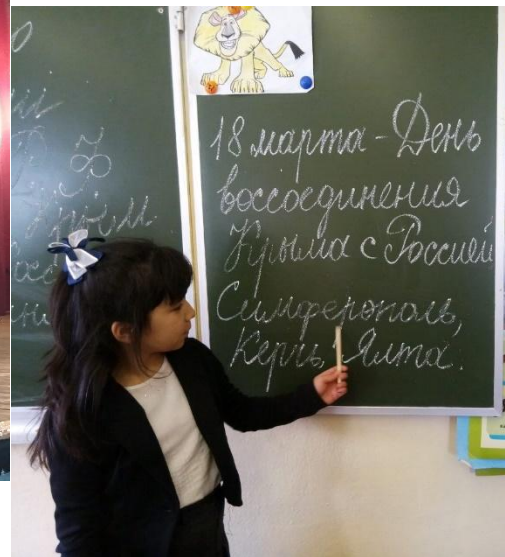 Крым
18 марта - День
воссоединения
Крыма с Россией
Симферополь,
Керчь, Ялта.